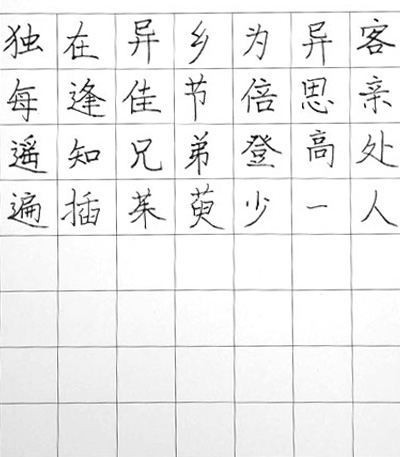 独在异乡为异客
每逢佳节倍思亲
遥知兄弟登高处
遍插茱萸少一人